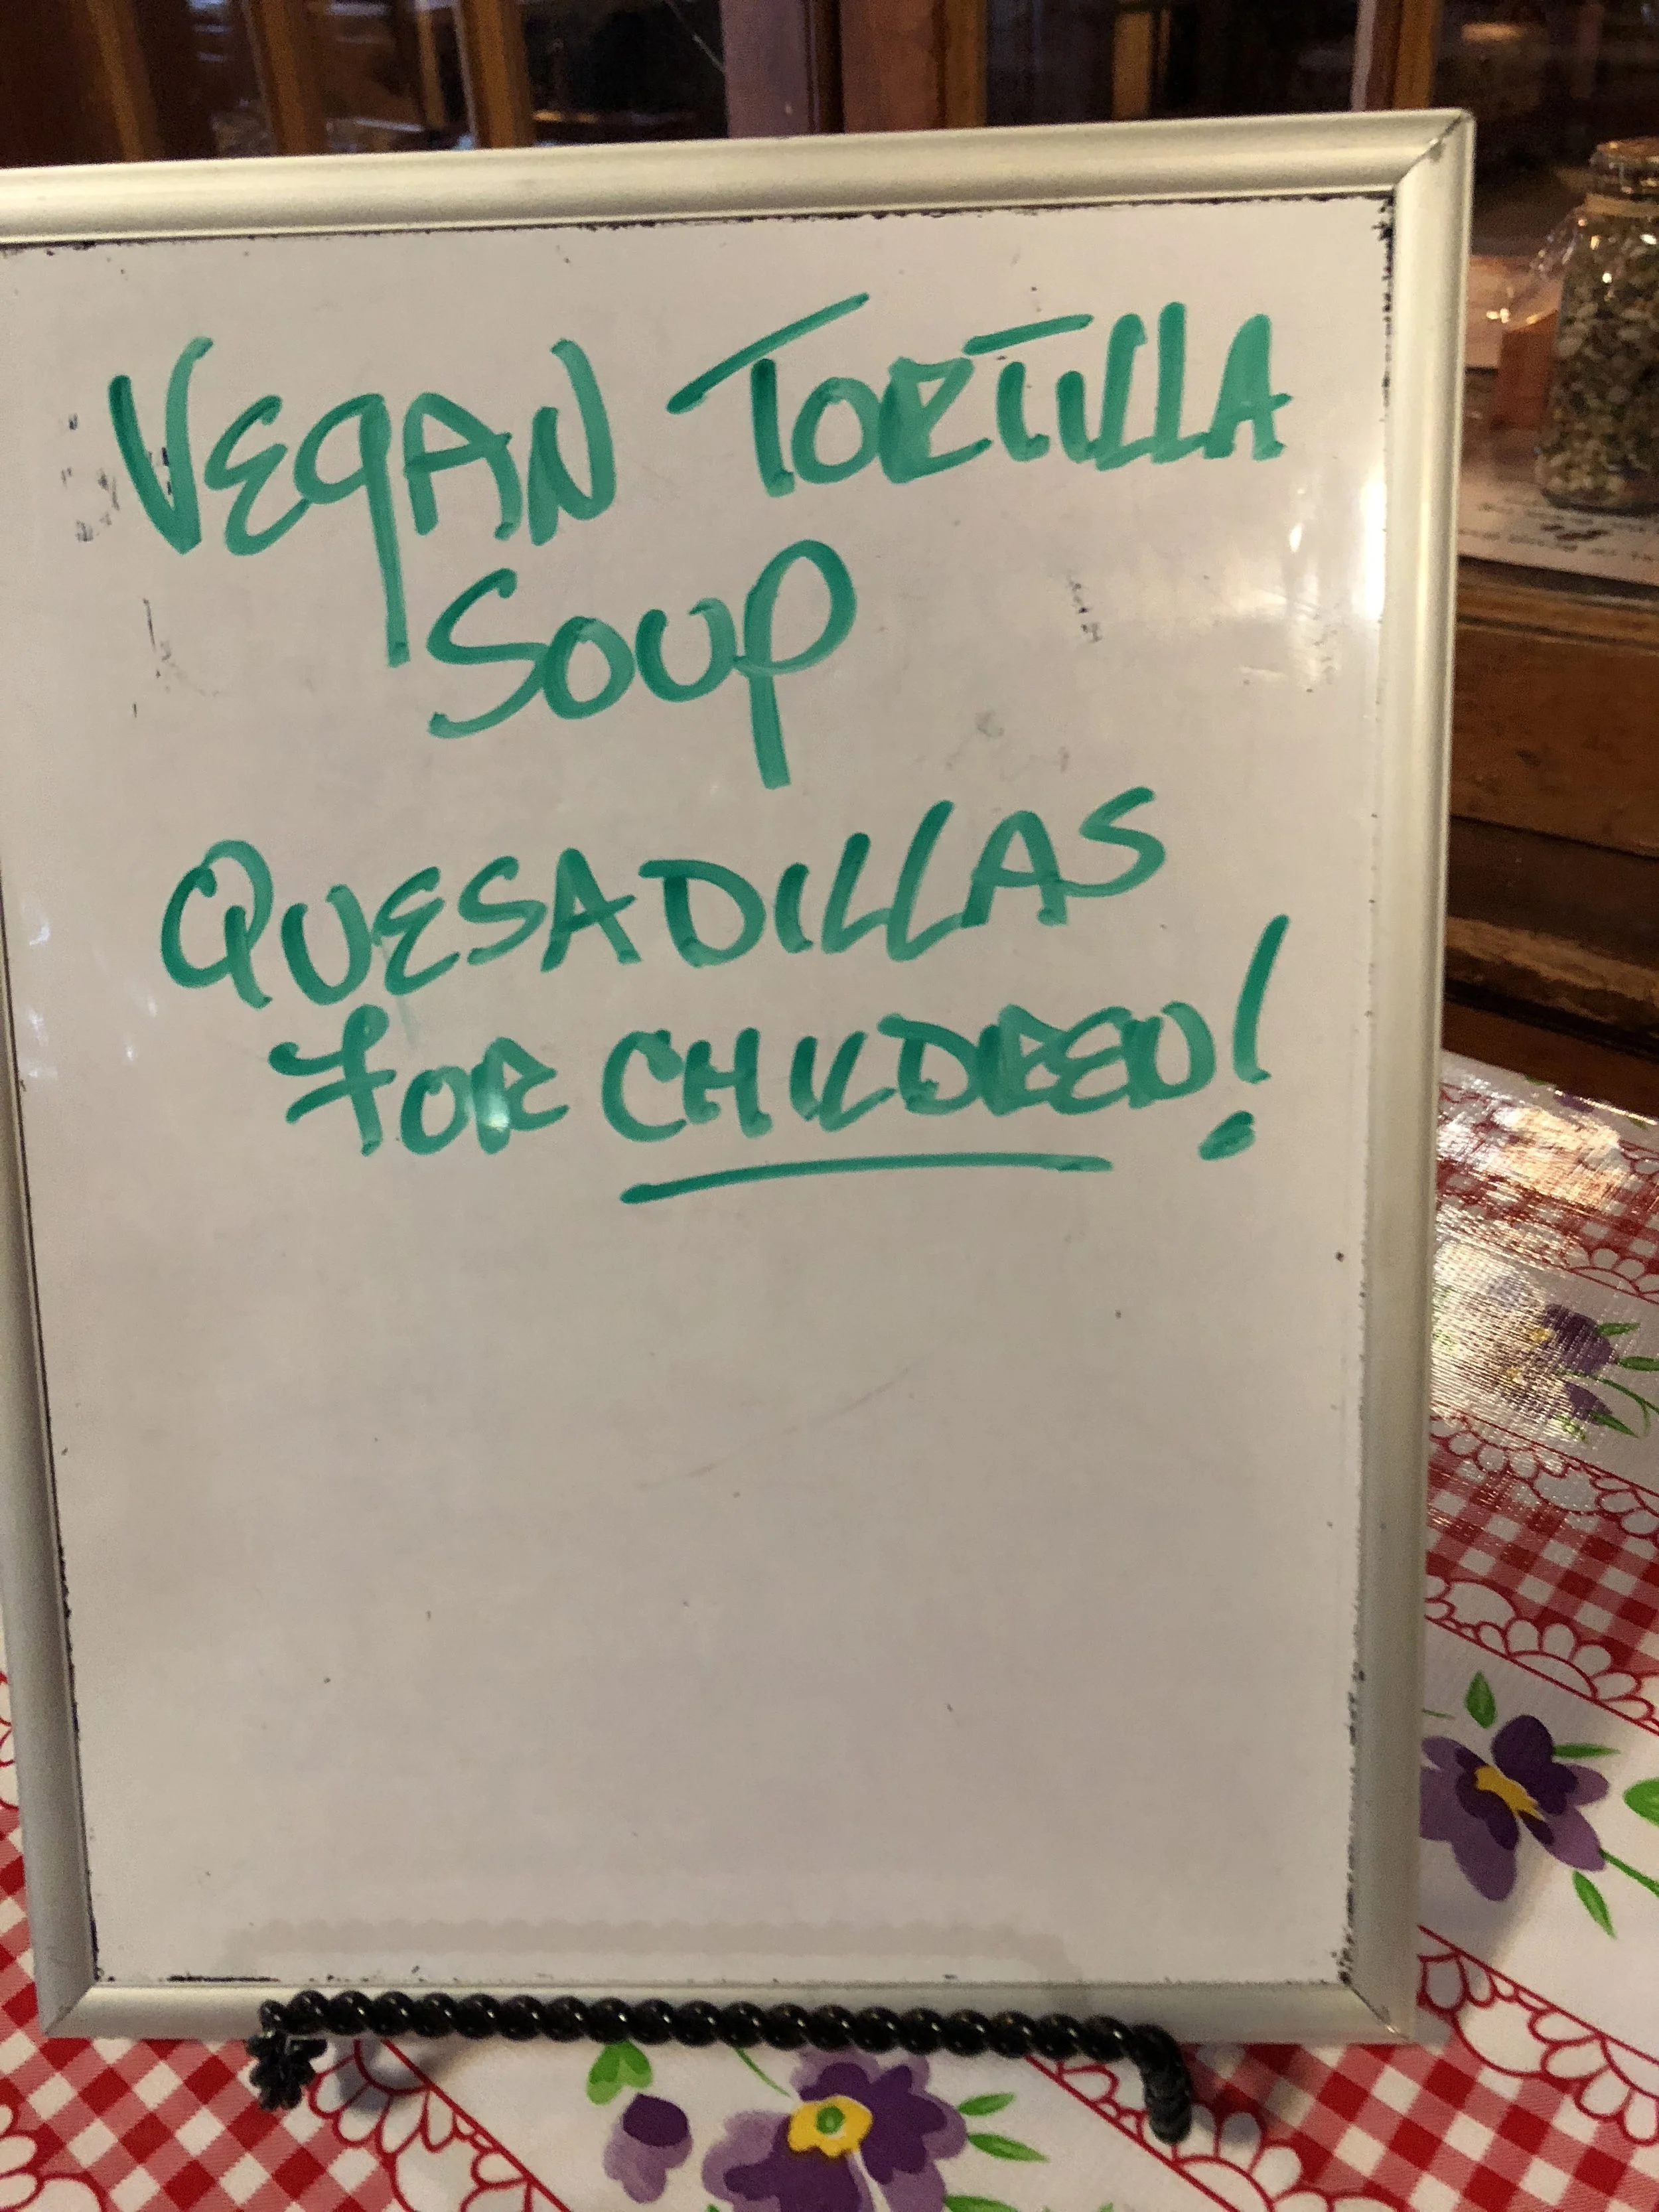 VEGAN TORTILLA
SOUP
QUESADILLAS
FOR CHILDREN!